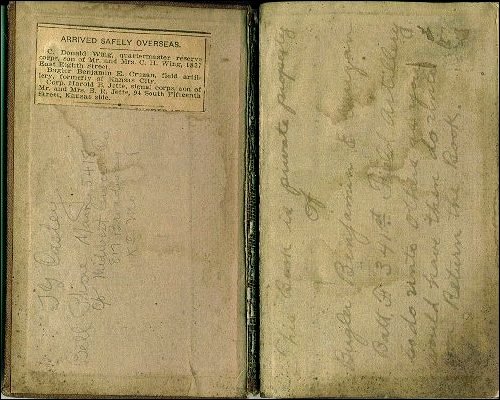 ARRIVED SAFELY OVERSEAS.
C. Donald Wing, quartermaster reserve
corps, son of Mr. and Mrs. C. H. Wing, 1837
East Eighth Street.
Bugler Benjamin E. Cruzan, field artil-
lery, formerly of Kansas City.
Corp. Harold R. Jette, signal corps, son of
Mr. and Mrs. E. R. Jette, 94 South Fifteenth
Street, Kansas side.
Bell Phone
Midwest
This Book is private property
of
Bugler Benjamin E
Batt F 341st Field Artillery
so do unto others as you
would have them do unto
Return the Book.